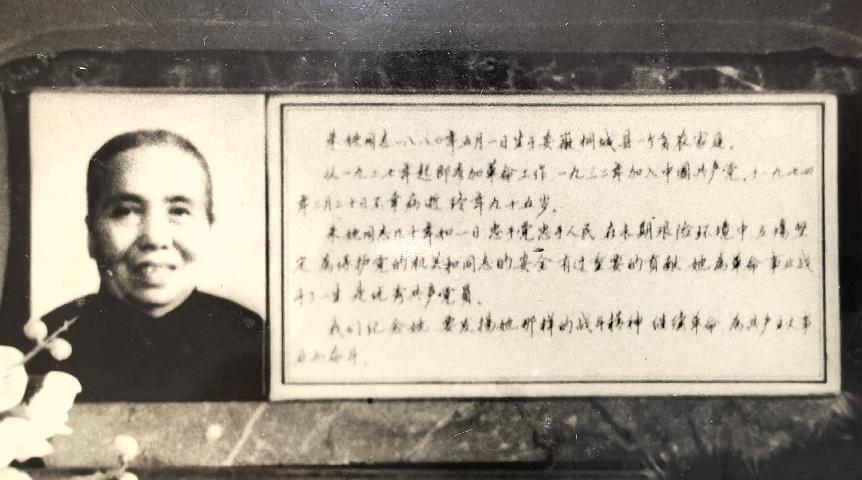 朱姚同志一八八〇年五月一日生于安徽桐城县一个贫农家庭。
从一九二七年起即参加革命工作 一九三二年加入中国共产党,于一九七四
年二月二十日不幸病逝 终年九十五岁。
朱姚同志几十年如一日 忠于党忠于人民 在长期艰险环境中立场坚
定 为保护党的机关和同志的安全 有过重要的贡献 她为革命事业战
斗了一生 是优秀共产党员。
我们纪念她 要发扬她那样的战斗精神 继续革命 为共产主义事
业而奋斗。